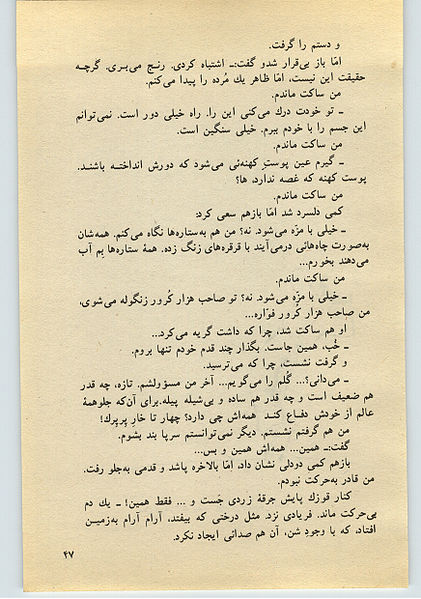 و دستم را گرفت.
امّا باز بی‌قرار شدو گفت:ـ اشتباه کردی. رنج می‌بری. گرچه
حقیقت این نیست، امّا ظاهر یك مُرده را پیدا می‌کنم.
من ساکت ماندم.
ـ تو خودت درك می‌کنی این را. راه خیلی دور است. نمی‌توانم
این جسم را با خودم ببرم. خیلی سنگین است.
من ساکت ماندم.
ـ گیرم عین پوستِ کهنه‌ئی می‌شود که دورش انداخته باشند.
پوست کهنه که غصه ندارد، ها؟
من ساکت ماندم.
کمی دلسرد شد امّا بازهم سعی کرد:
ـ خیلی با مزّه می‌شود، نه؟ من هم به‌ستاره‌ها نگاه می‌کنم. همه‌شان
به‌صورت چاه‌هائی درمی‌آیند با قرقره‌های زنگ زده. همهٔ ستاره‌ها بِم آب
می‌دهند بخورم...
من ساکت ماندم.
ـ خیلی با مزّه می‌شود. نه؟ تو صاحب هزار کُرور زنگوله می‌شوی،
من صاحب هزار کُرور فوّاره...
او هم ساکت شد، چرا که داشت گریه می‌کرد...
ـ خُب، همین جاست. بگذار چند قدم خودم تنها بروم.
و گرفت نشست، چرا که می‌ترسید.
ـ می‌دانی؟... گُلم را می‌گویم... آخر من مسؤولشم. تازه، چه قدر
هم ضعیف است و چه قدر هم ساده و بی‌شیله پیله.برای آن‌که جلوهمهٔ
عالم از خودش دفاع کند همه‌اش چی دارد؟ چهار تا خارِ پِرپِرك!
من هم گرفتم نشستم. دیگر نمی‌توانستم سرپا بند بشوم.
گفت:ـ همین... همه‌اش همین و بس...
بازهم کمی دودلی نشان داد، امّا بالاخره پاشد و قدمی به‌جلو رفت.
من قادر به‌حرکت نبودم.
کنار قوزك پایش جرقهٔ زردی جَست و ... فقط همین! ـ یك دم
بی‌حرکت ماند. فریادی نزد. مثل درختی که بیفتد، آرام آرام به‌زمین
افتاد، که با وجودِ شن، آن هم صدائی ایجاد نکرد.
۴۷